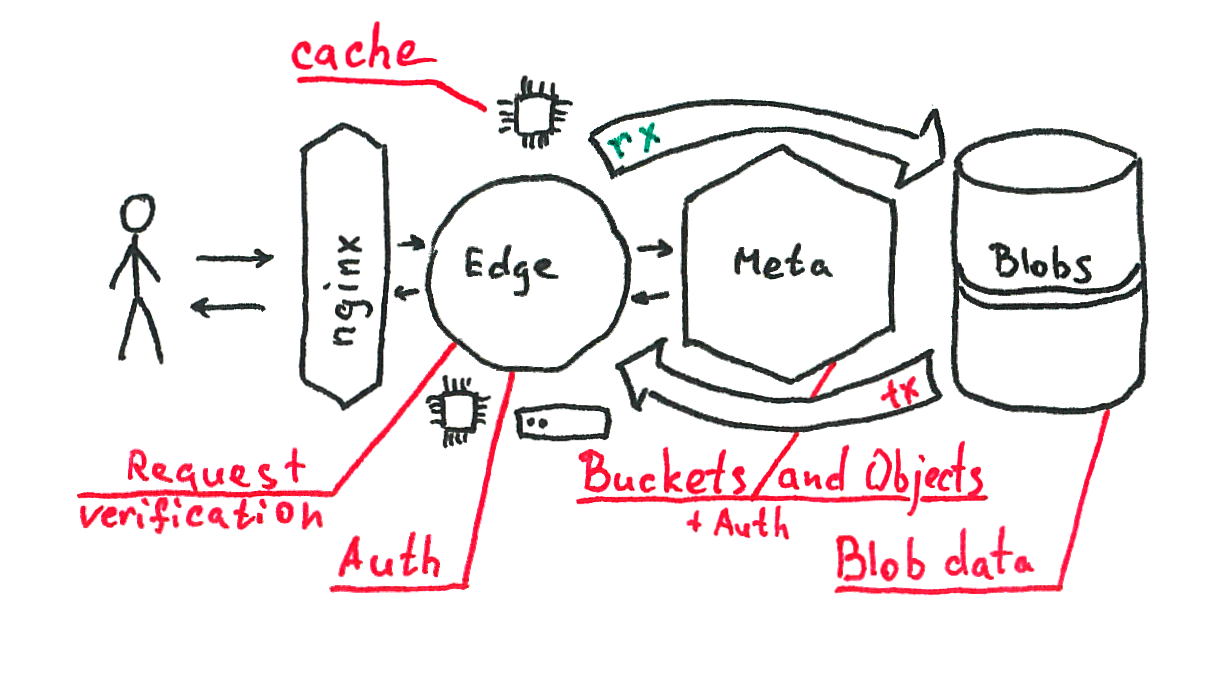 cache
rx
nginx
Edge
Meta
Blobs
tx
Request
verification
Auth
Buckets and Objects
+ Auth
Blob data